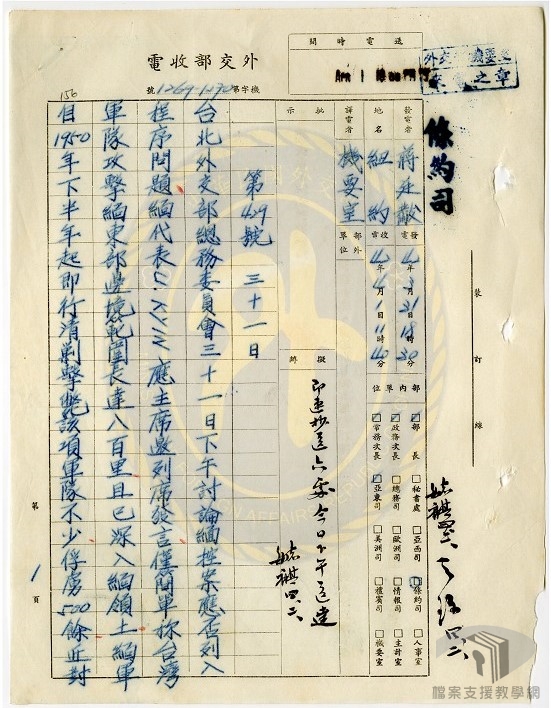 外交部收電
機字第1269-1270號
送電時間
APR 1
批示
譯電者
機要室
地名
紐約
發電者
蔣廷黻
部外單位
收電
年4月1日11時40分
發電
年3月31日18時30分
部內單位
部長
政務次長
常務次長
秘書處
總務司
亞東司
亞西司
歐洲司
美洲司
條約司
情報司
禮賓司
人事室
主計室
機要室
擬辦
條約司
裝訂線
第449號 三十一日
台北外交部總務委員會三十一日下午討論緬控案應否列入
程序問題緬代表應主席邀列席發言僅簡單稱台灣
軍隊攻擊緬東部邊境範圍長達八百里且已深入緬領土緬軍
自1950年下半年起即行清剿擊斃該項軍隊不少俘虜500餘近封
156
第1頁
檔案支援教學網